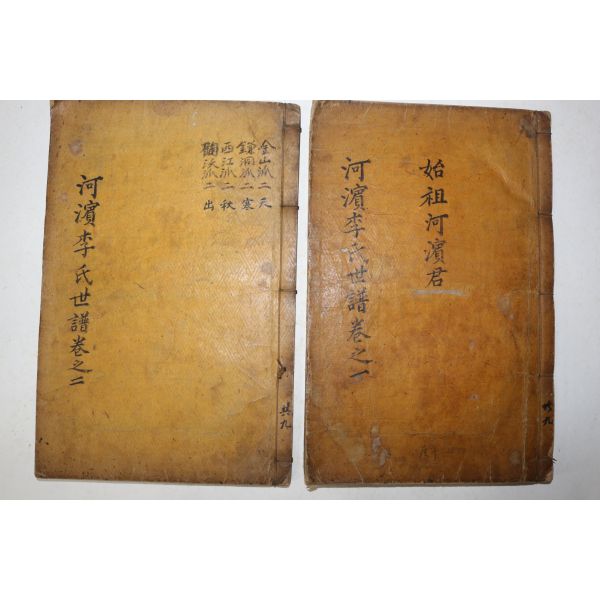 始祖河濱君
河濱李氏世譜卷之一
共九
金山派二天
鎌洞派二寒
西江派二秋
派二出
河濱李氏世譜卷之二
共九